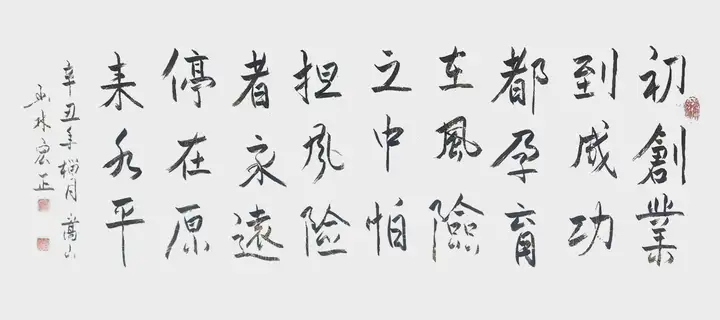 初創業
到成功
都孕育
在風險
之中怕
担风险
者永遠
停在原
来水平
辛丑年榴月嵩山
林宏正